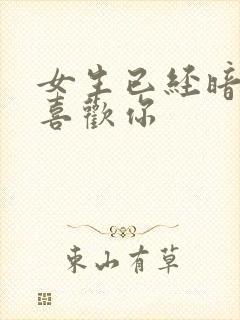 女生已经暗
喜歡你
東山有草